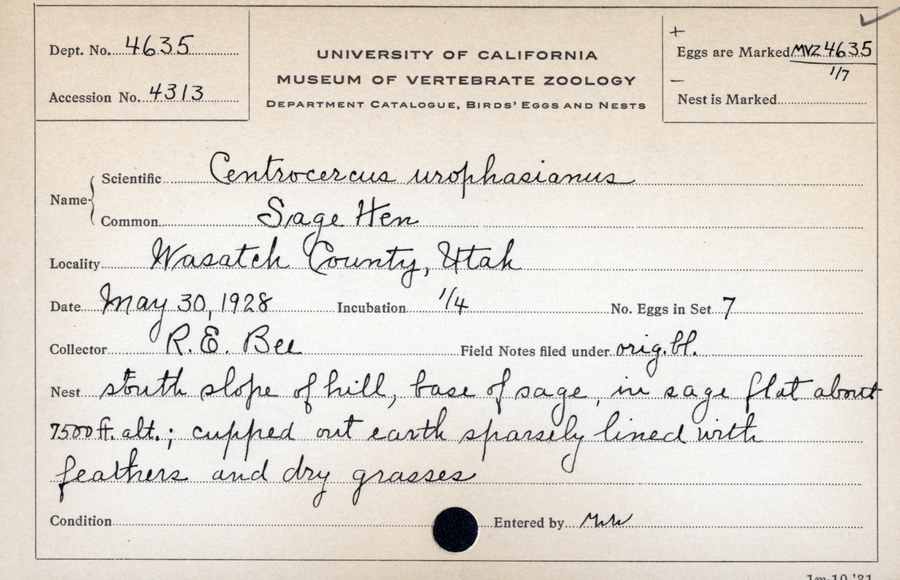 Dept. No. 4635
Accession No. 4313
UNIVERSITY OF CALIFORNIA
MUSEUM OF VERTEBRATE ZOOLOGY
DEPARTMENT CATALOGUE, BIRDS' EGGS AND NESTS
+
Eggs are Marked MVZ 4635
1/7
–
Nest is Marked
Name
Scientific Centrocercus urophasianus
Common Sage Hen
Locality Wasatch County, Utah
Date May 30, 1928 Incubation 1/4 No. Eggs in Set 7
Collector R.E. Bee Field Notes filed under orig. bl.
Nest south slope of hill, base of sage, in sage flat about
7500 ft. alt.; cupped out earth sparsely lined with
feathers and dry grasses
Condition Entered by
1m-10,'31